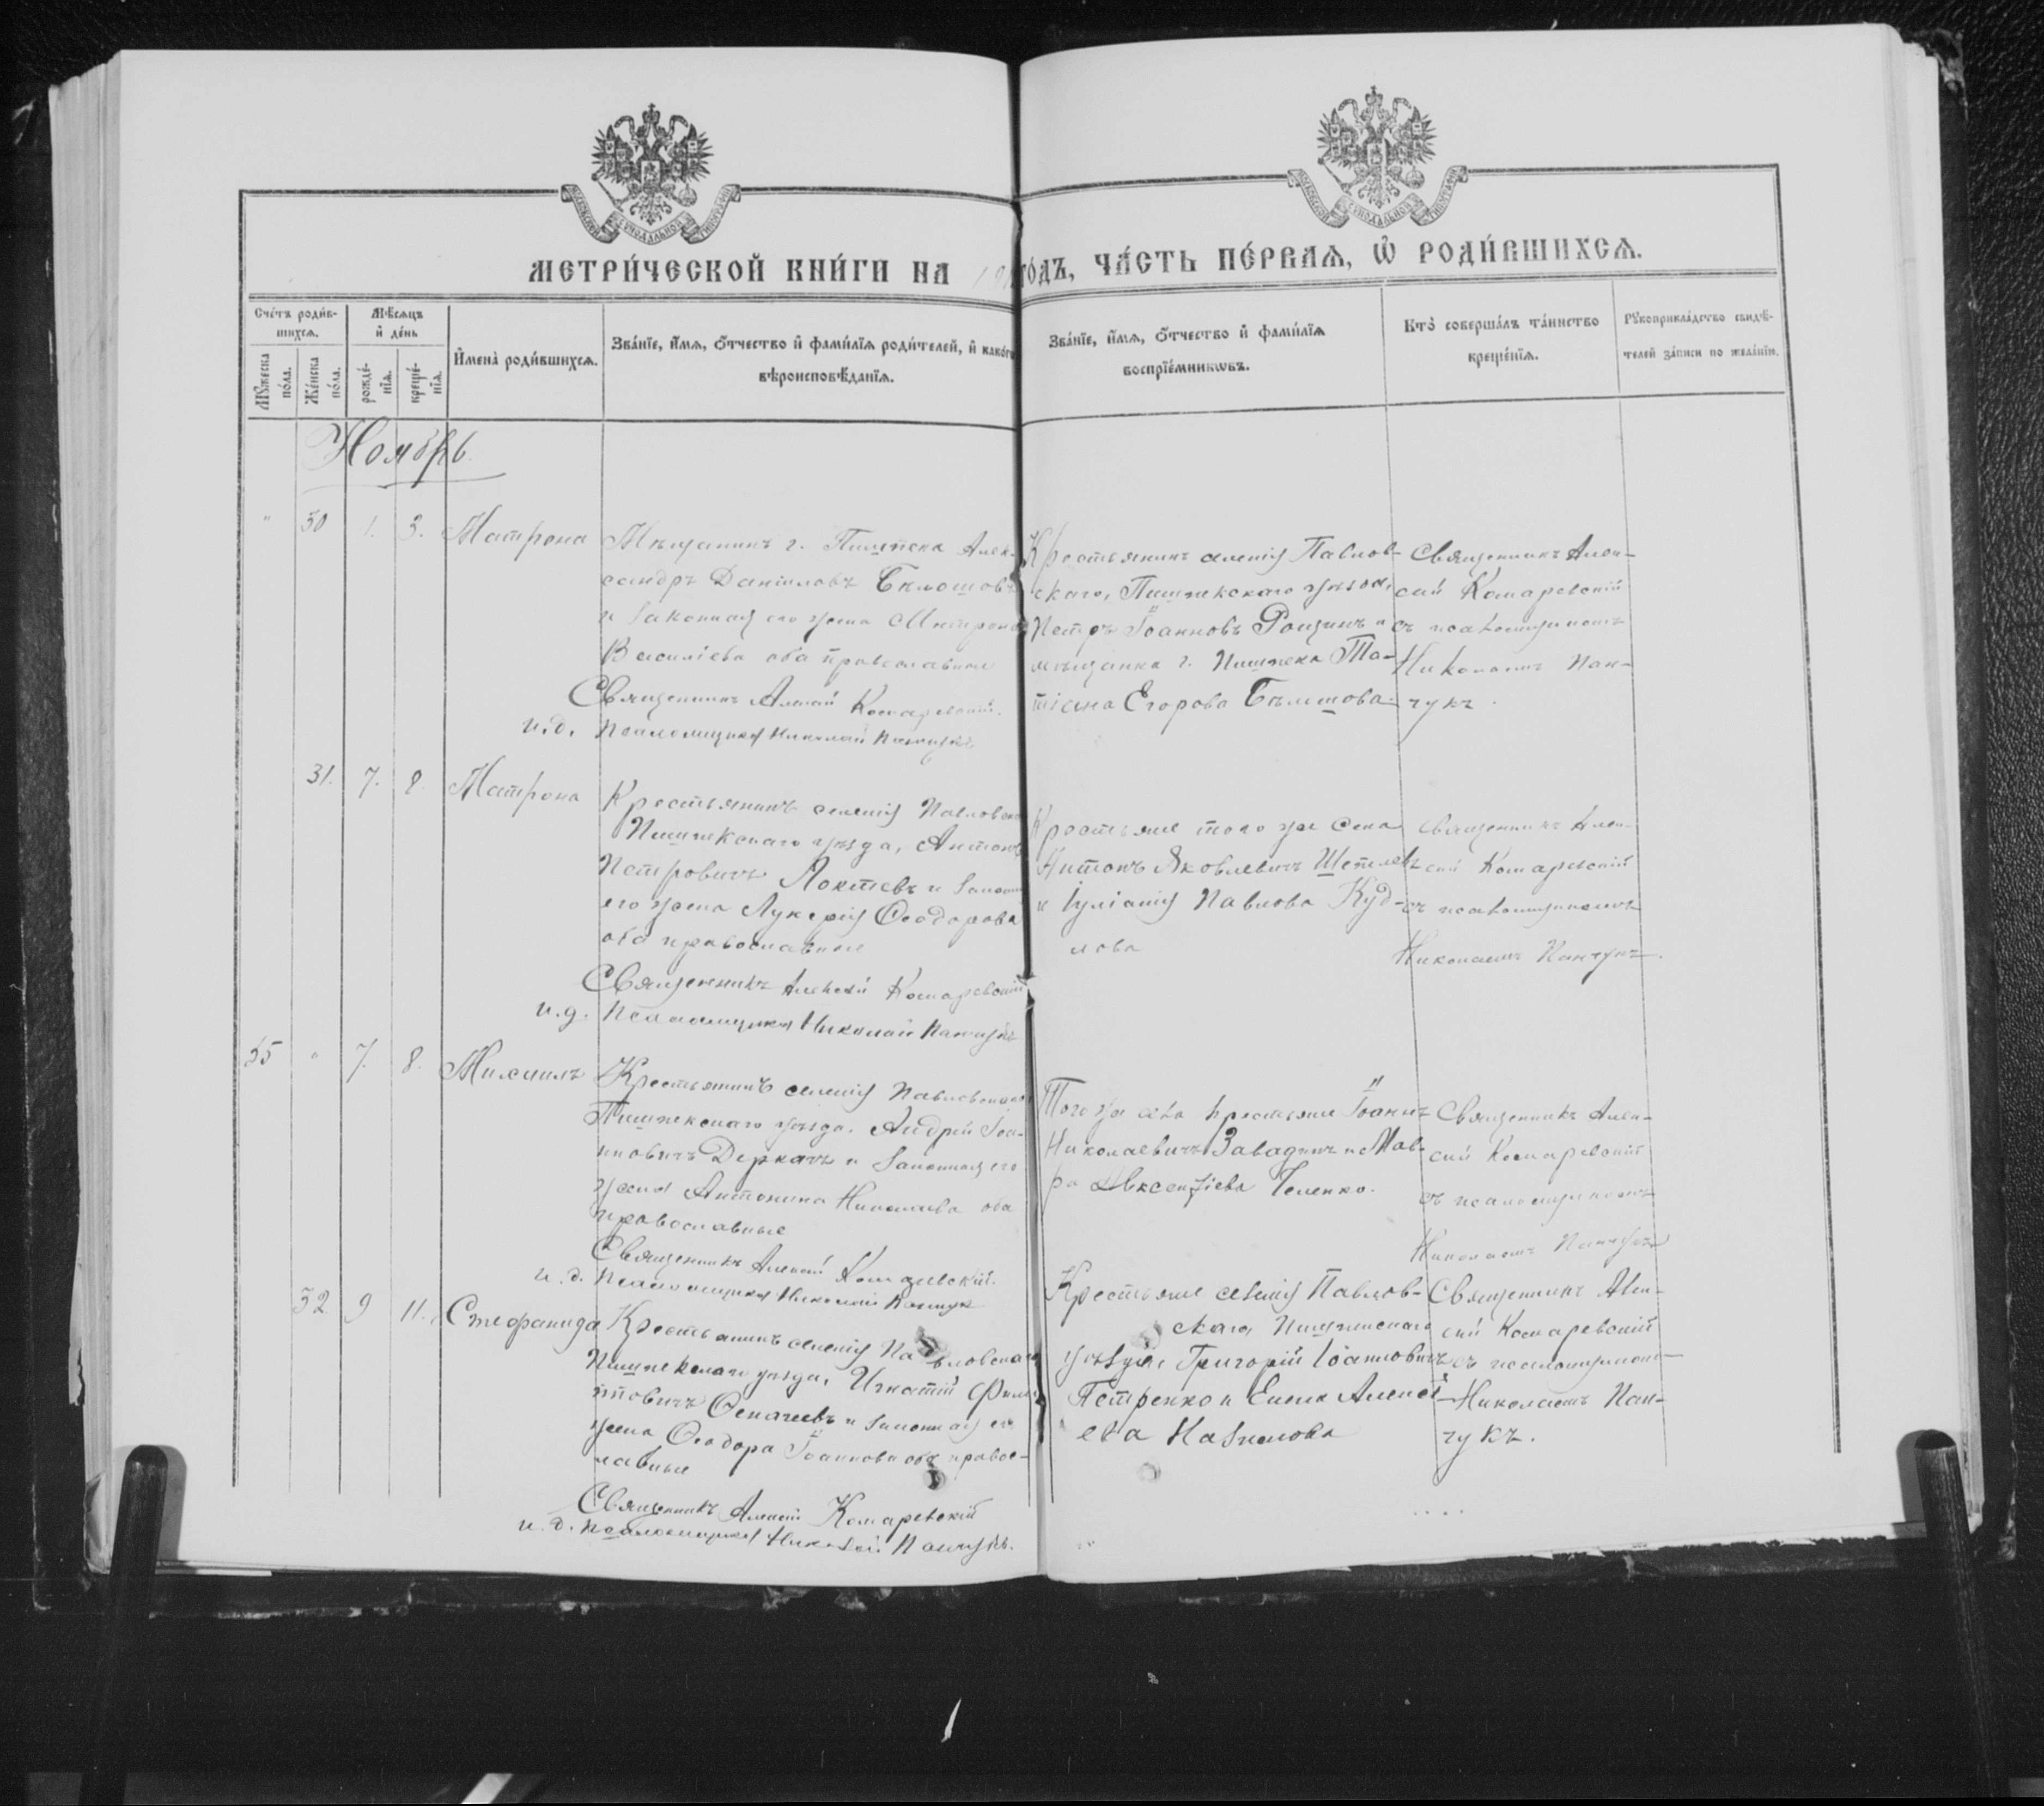 МОСКОВСКОЙ СѴНОДАЛЬНОЙ ТИПОГРАФІИ
МОСКОВСКОЙ СѴНОДАЛЬНОЙ ТИПОГРАФІИ
МЕТРИ́ЧЕСКОЙ КНИ́ГИ НА 19 ГО́ДЪ, ЧА́СТЬ ПЕ́РВАѦ, Ѽ РОДИ́ВШИХСѦ.
Сче́тъ роди́в-
шихсѧ.
Мꙋ́жеска по́ла.
Же́нска по́ла.
Мѣ́сѧцъ
и҆ де́нь
рожде́-
нїѧ.
креще́-
нїѧ.
И҆мена̀ роди́вшихсѧ.
Зва́нїе, и҆́мѧ, ѻ҆́тчество и҆ фами́лїѧ роди́телей, и҆ како́гѡ
вѣроисповѣ́данїѧ.
Зва́нїе, и҆́мѧ, ѻ҆́тчество и҆ фами́лїѧ
воспрїе́мникѡвъ.
Кто̀ соверша́лъ та́инство
креще́нїѧ.
Рꙋкоприкла́дство свидѣ́-
телей за́писи по жела́нїю.
Ноябрь
" 30 1. 3. Матрона
Мѣщанинъ г. Пишпека Алек-
сандръ Даніиловъ Бѣлошовъ
и законная его жена Митрона
Василіева оба православные
Священникъ Алексій Комаревскій.
и.д. Псаломщика Николай Панчукъ
Крестьянинъ селенія Павлов-
скаго, Пишпекскаго уѣзда,
Петръ Іоанновъ Рощинъ и
мѣщанка г. Пишпека Та-
тіана Егорова Бѣлошова
Священникъ Алек-
сій Комаревскій
съ псаломщикомъ
Николаемъ Пан-
чукъ.
31. 7. 8. Матрона
Крестьянинъ селенія Павловскаго
Пишпекскаго уѣзда, Антонъ
Петровичъ Локтевъ и законная
его жена Лукерія Ѳеодорова
оба православные
Священникъ Алексій Комаревскій
и.д. Псаломщика Николай Панчукъ
Крестьяне того же села
Антонъ Яковлевичъ Шепелевъ
и Іуліанія Павлова Куд-
лова
Священникъ Алек-
сій Комаревскій
съ псаломщикомъ
Николаемъ Панчукъ.
35 " 7. 8. Михаилъ
Крестьянинъ селенія Павловскаго
Пишпекскаго уѣзда, Андрей Іоан-
новичъ Деркачъ и законная его
жена Антонина Николаева оба
православные
Священникъ Алексій Комаревскій.
и.д. Псаломщика Николай Панчукъ
Того же села крестьяне Іоаннъ
Николаевичъ Завадинъ и Мав-
ра Авксентіева Теленко.
Священникъ Алек-
сій Комаревскій
съ псаломщикомъ
Николаемъ Панчукъ
32 9 11. Стефанида
Крестьянинъ селенія Павловскаго
Пишпекскаго уѣзда, Игнатій Филип-
повичъ Осначевъ и законная его
жена Ѳеодора Іоаннова оба правос-
лавные
Священникъ Алексій Комаревскій
и.д. Псаломщика Николай Панчукъ.
Крестьяне селенія Павлов-
скаго, Пишпекскаго
уѣзда, Григорій Іоанновичъ
Петренко и Елена Алексѣ-
ева Назимова
Священникъ Алек-
сій Комаревскій
съ псаломщикомъ
Николаемъ Пан-
чукъ.